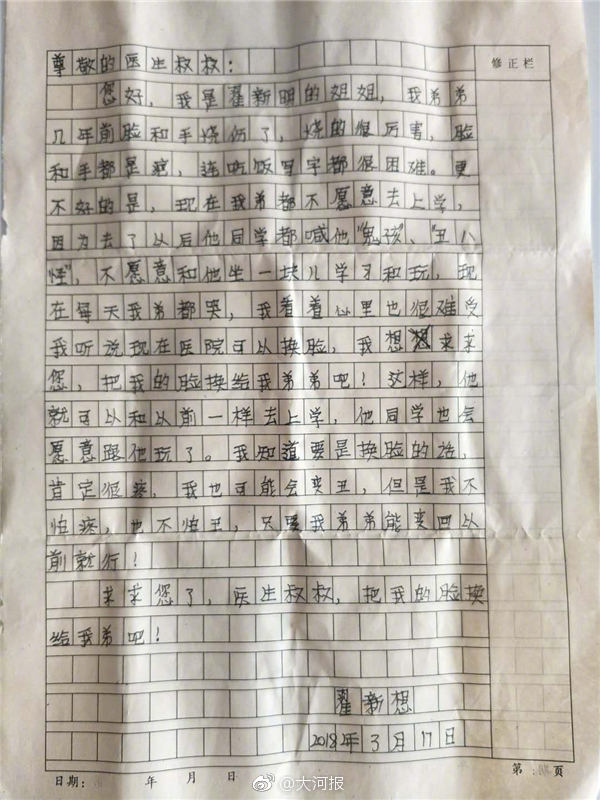 尊敬的医生叔叔：
修正栏
您好，我是翟新明的姐姐，我弟弟
几年前脸和手烧伤了，烧的很厉害，脸
和手都是疤，连吃饭写字都很困难。更
不好的是，现在我弟都不愿意去上学，
因为去了以后他同学都喊他"鬼孩"、"丑八
怪"，不愿意和他坐一块儿学习和玩，现
在每天我弟都哭，我看着心里也很难受
我听说现在医院可以换脸，我想求求
您，把我的脸换给我弟弟吧！这样，他
就可以和以前一样去上学，他同学也会
愿意跟他玩了。我知道要是换脸的话，
肯定很疼，我也可能会变丑，但是我不
怕疼，也不怕丑，只要我弟弟能变回以
前就行！
求求您了，医生叔叔，把我的脸换
给我弟吧！
翟新想
2018年3月17日
日期： 年 月 日
第 页
@大河报